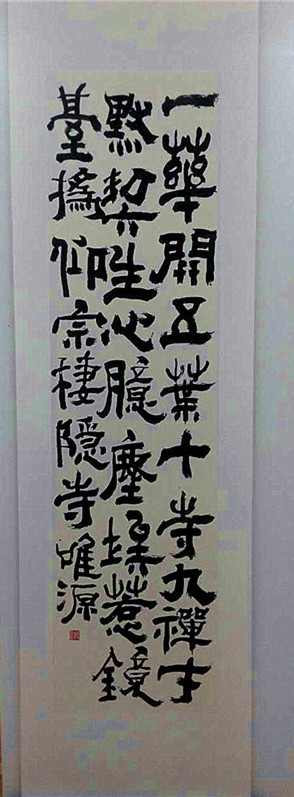 一華開五葉十寺九禪才
默契生心臆塵埃惹鏡
臺溈仰宗棲隱寺唯源